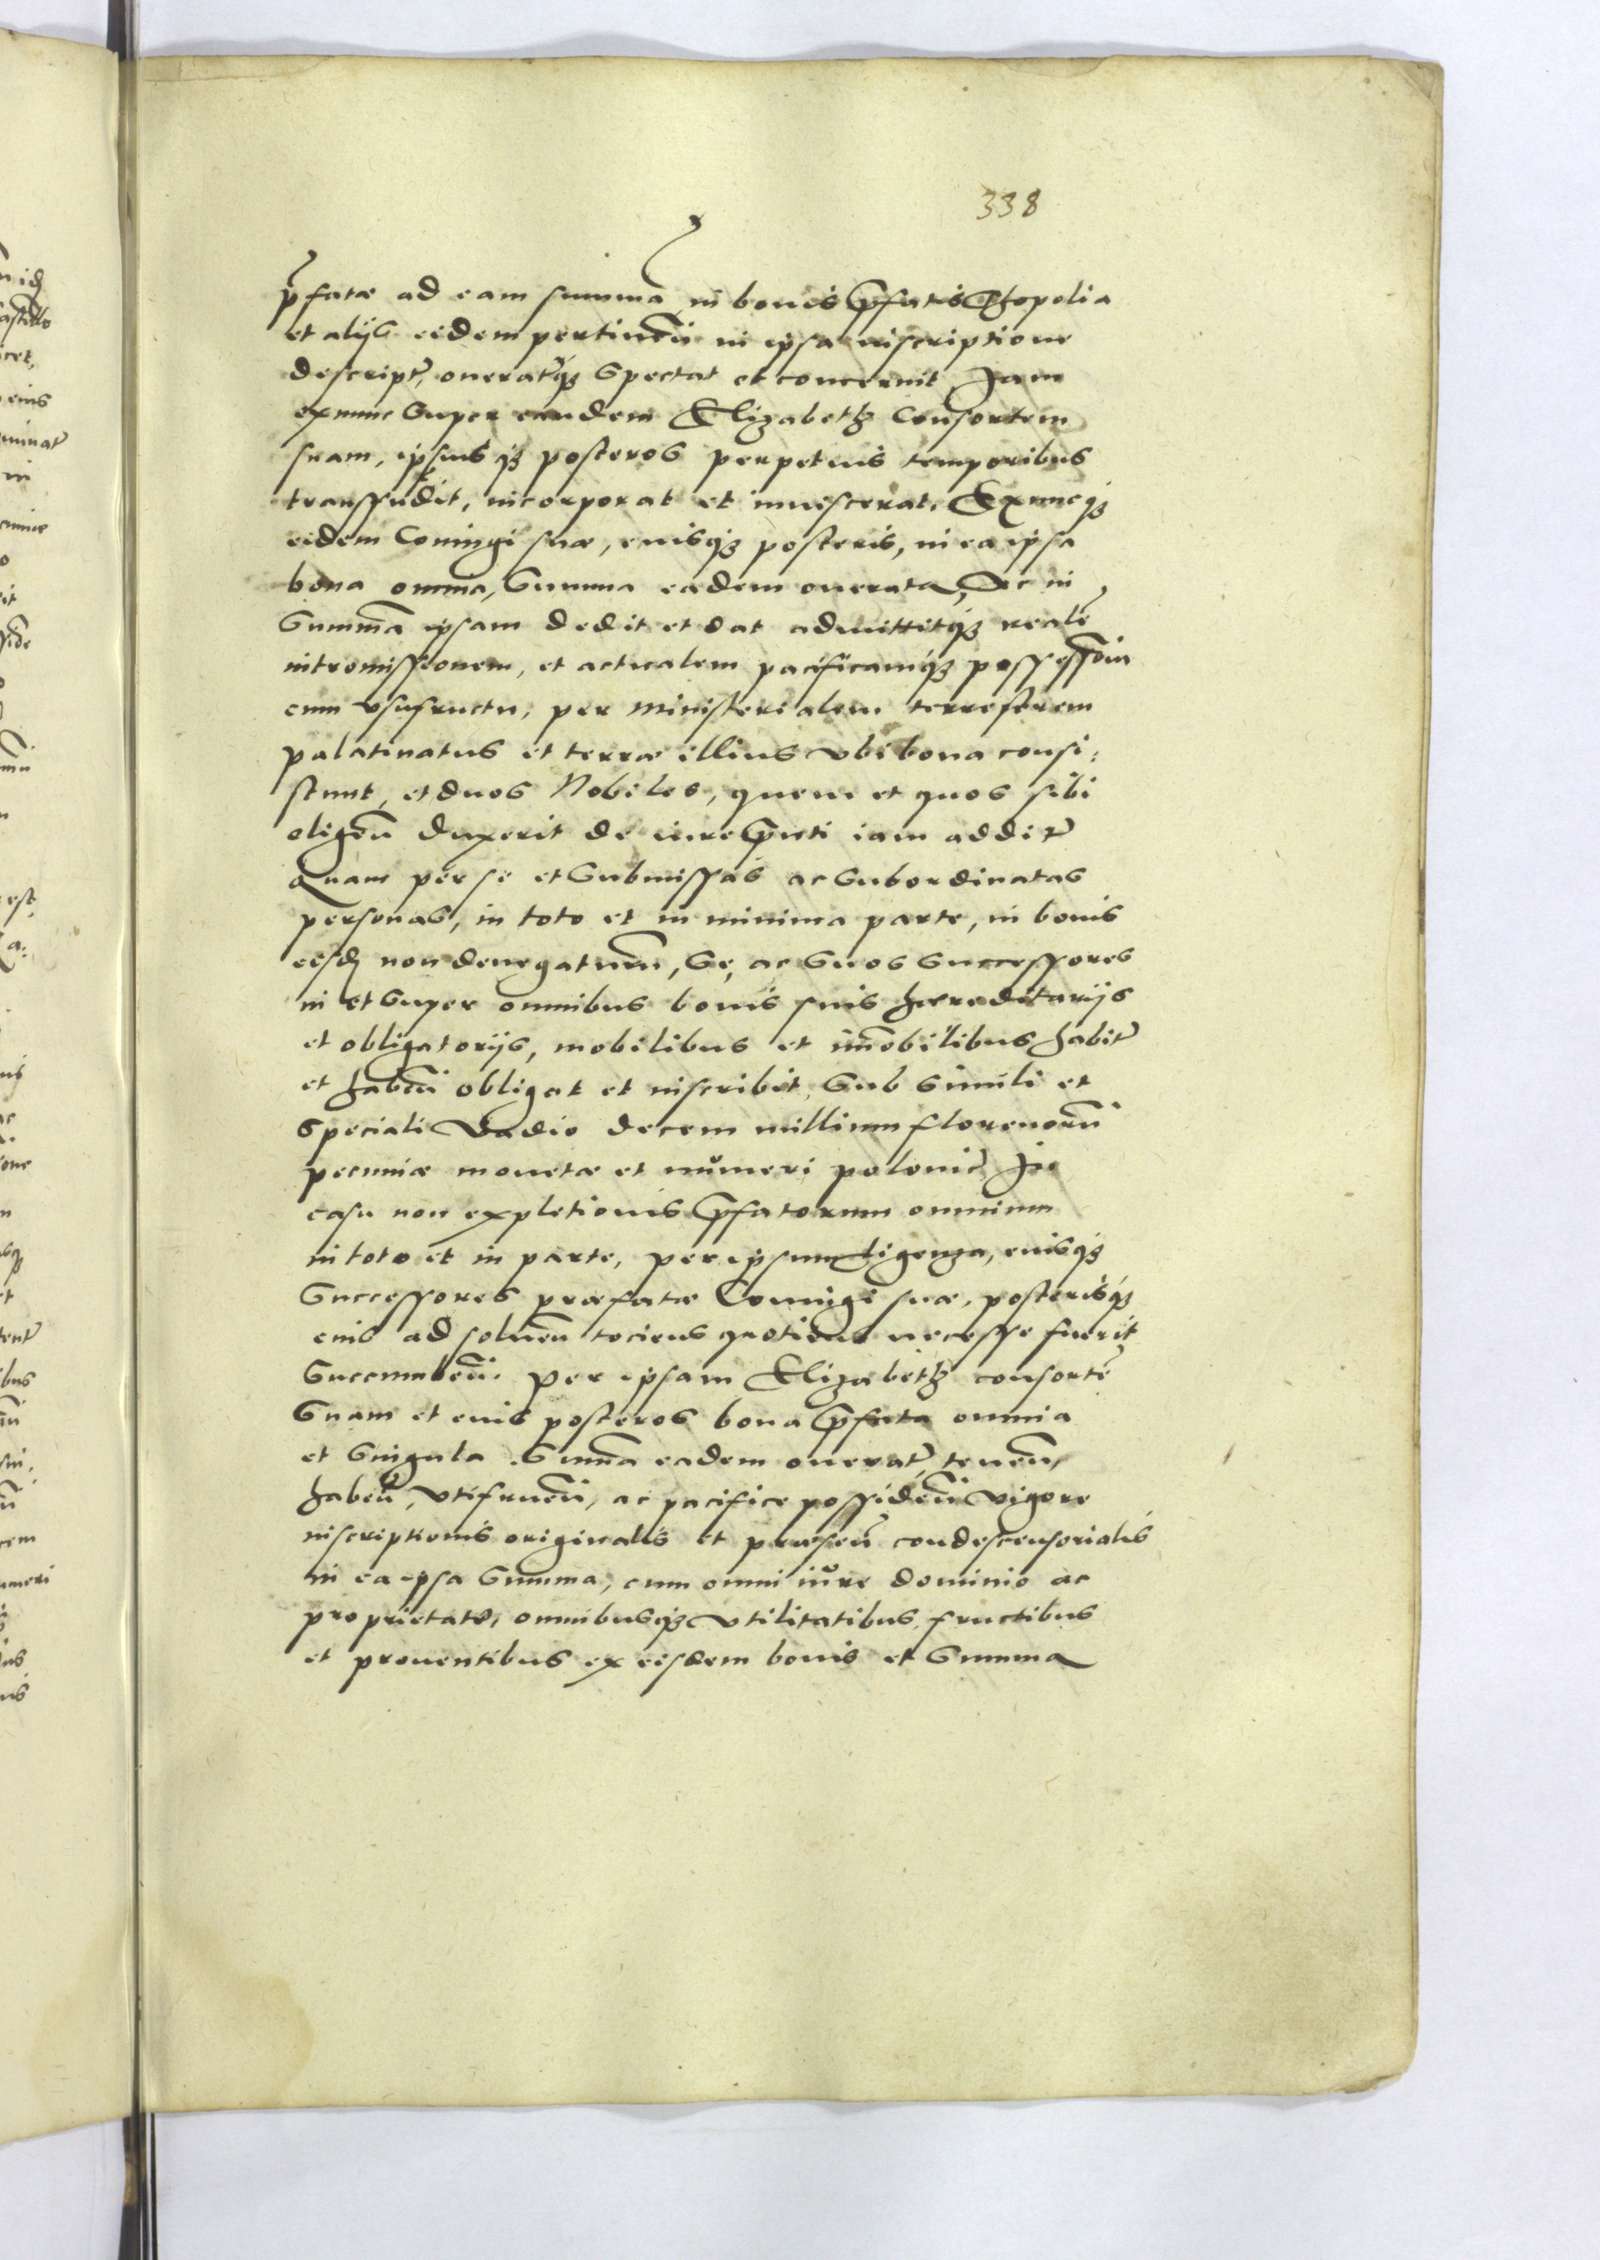 338
p̃fatæ ad eam summã in bonis p̃fatis Chopolia
et alijs eidem pertinẽn in ipsa inscriptione
descript̃, onerat̃q3 spectat et concernit Jam
exnunc super eandem Elizabeth Consortem
suam, ipsius q3 posteros perpetuis temporibus
transfudit, incorporat et inuiscerat. Exnuncq3
eidem Coniugi suæ, eiusq3 posteris, in ea ipsa
bona omnia, summa eadem onerata, Ac in
Summã ipsam dedit et dat admittitq3 realẽ
intromissionem, et actualem pacificamq3 possessioñ
cum vsufructu, per Ministerialem terrestrem
palatinatus et terræ illius vbi bona consi:
stunt, et duos Nobiles, quem et quos sibi
eligeñ duxerit de iure p̃nti iam addit̃
Quam per se et submissas ac subordinatas
personas, in toto et in minima parte, in bonis
eisd̃ non denegaturũ, Se, ac suos successores
in et super omnibus bonis suis hæreditarijs
et obligatorijs, mobilibus et im̃obilibus habit̃
et habeñ obligat et inscribit, sub simili et
speciali Vadio decem millium florenorũ
pecuniæ monetæ et nŭmeri polonic̃ In
casu non expletionis p̃fatorum omnium
in toto et in parte, per ipsum Ligenza, eiusq3
Successores præfatæ Coniugi suæ, posterisq3
eius ad solueñ tociens quotiens necesse fuerit
Succumbeñ. Per ipsam Elizabeth consortẽ
suam et eius posteros bona p̃fata omnia
et singula Sum̃a eadem onerat̃, teneñ,
habeñ, vtifrueñ, ac pacifice possideñ vigore
inscriptionis originalis et præseñ condescensorialis
in ea ipsa summa, cum omni iŭre dominio ac
proprietate, omnibusq3 vtilitatibus fructibus
et prouentibus ex eisdem bonis et summa